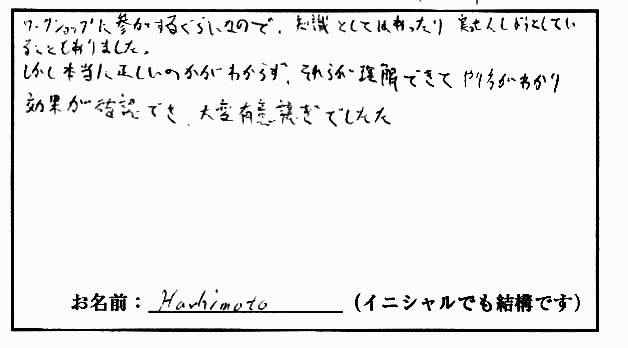 ワークショップに参加するぐらいなので、知識としてはあったり 実践しようとしてい
ることもありました。
しかし本当に正しいのかがわからず、それらが理解できて やり方がわかり
効果が確認でき、大変有意義でした
お名前： Hashimoto （イニシャルでも結構です）